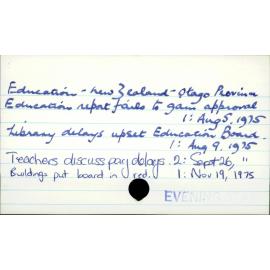 Education - New Zealand - Otago Province
Education report fails to gain approval
1: Aug 5, 1975
Library delays upset Education Board.
1: Aug 9, 1975
Teachers discuss pay delays. 2: Sept 26, "
Buildings put board in red. 1: Nov 19, 1975
EVENING